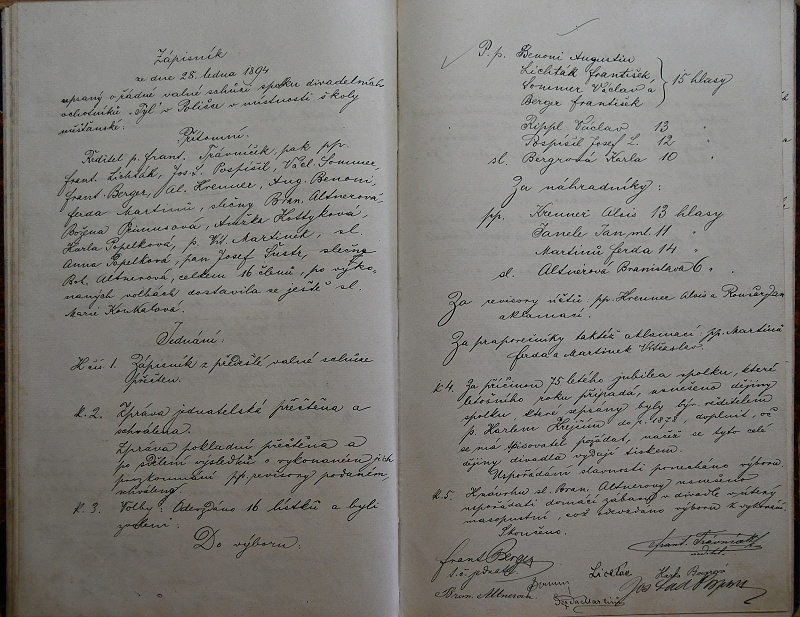 Zápisník
ze dne 28. ledna 1894
sepsaný o řádné valné schůzi spolku divadelních
ochotníků „Tyl" v Poličce v místnosti školy
měšťanské.
Přítomni:
Ředitel p. Frant. Trávníček, pak pp.
Frant. Lichták, Jos. L. Pospíšil, Václ. Sommer,
Frant. Berger, Al. Krenner, Aug. Benoni,
Ferda Martinů, slečny Bran. Altnerová,
Božena Primusová, Anežka Kottyková,
Karla Popelková, p. Vít. Martinek, sl.
Anna Popelková, pan Josef Šustr, slečna
Boh. Altnerová, celkem 16 členů, po vyko-
naných volbách dostavila se ještě sl.
Marie
Jednání:
K čís. 1. Zápisník z předešlé valné schůze
přečten.
k. 2. Zpráva jednatelská přečtěna a
schválena.
Zpráva pokladní přečtěna a
po sdělení výsledků o vykonaném jich
přezkoumání pp. revisory podaném,
schválena.
k. 3. Volby: Odevzdáno 16 lístků a byli
zvoleni:
Do výboru:
P. p. Benoni Augustin
Lichták František,
Sommer Václav a
Berger František
15 hlasy
Rippl Václav 13 "
Pospíšil Josef L. 12 "
sl. Bergrová Karla 10 "
Za náhradníky:
pp. Krenner Alois 13 hlasy
Janele Jan ml. 11 "
Martinů Ferda 14 "
sl. Altnerová Branislava 6 "
Za revisory účtů pp. Krenner Alois a Jan
aklamací.
Za praporečníky taktéž aklamací pp. Martinů
Ferda a Martinek Vítězslav.
k 4. Za příčinou 75 letého jubilea spolku, které
letošního roku připadá, usnešeno dějiny
spolku, které sepsány byly býv. ředitelem
p. Karlem Krejčím do r. 1878, doplnit, oč
se má spisovatel požádat, načež se tyto celé
dějiny divadla vydají tiskem.
Uspořádání slavnosti ponecháno výboru
k. 5. K návrhu sl. Bran. Altnerovy usnešeno
uspořádati domácí zábavu v divadle v úterý
masopustní, což odevzdáno výboru k vykonání.
Skončeno.
Frant. Berger
t. č. jednatel
Frant. Trávníček
ředitel
Bran. Altnerová
Benoni
Lichták
Karla
Ferda Martinů